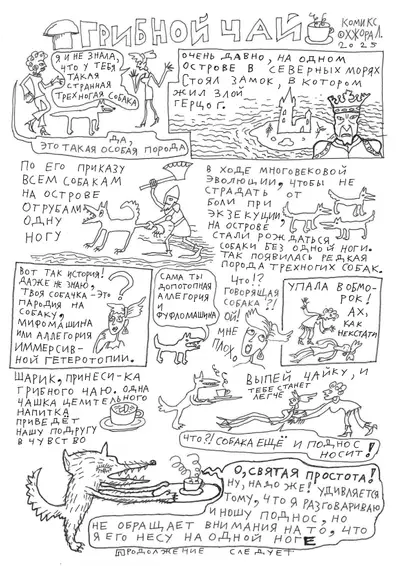 ГРИБНОЙ ЧАЙ
КОМИКС
ОХЖОРАЛ.
2025
Я И НЕ ЗНАЛА,
ЧТО У ТЕБЯ
ТАКАЯ
СТРАННАЯ
ТРЕХНОГАЯ СОБАКА
ДА,
ЭТО ТАКАЯ ОСОБАЯ ПОРОДА
ОЧЕНЬ ДАВНО, НА ОДНОМ
ОСТРОВЕ В СЕВЕРНЫХ МОРЯХ
СТОЯЛ ЗАМОК, В КОТОРОМ
ЖИЛ ЗЛОЙ
ГЕРЦОГ.
ПО ЕГО ПРИКАЗУ
ВСЕМ СОБАКАМ
НА ОСТРОВЕ
ОТРУБАЛИ
ОДНУ
НОГУ
В ХОДЕ МНОГОВЕКОВОЙ
ЭВОЛЮЦИИ, ЧТОБЫ НЕ
СТРАДАТЬ ОТ
БОЛИ ПРИ
ЭКЗЕКУЦИИ,
НА ОСТРОВЕ
СТАЛИ РОЖДАТЬСЯ
СОБАКИ БЕЗ ОДНОЙ НОГИ.
ТАК ПОЯВИЛАСЬ РЕДКАЯ
ПОРОДА ТРЕХНОГИХ СОБАК.
ВОТ ТАК ИСТОРИЯ!
ДАЖЕ НЕ ЗНАЮ,
ТВОЯ СОБАЧКА - ЭТО
ПАРОДИЯ НА
СОБАКУ,
МИФОМАШИНА
ИЛИ АЛЛЕГОРИЯ
ИММЕРСИВ-
НОЙ ГЕТЕРОТОПИИ.
?
САМА ТЫ
ДОПОТОПНАЯ
АЛЛЕГОРИЯ
И
ФУФЛОМАШИНА
ЧТО!?
ГОВОРЯЩАЯ
СОБАКА ?!
ОЙ!
МНЕ
ПЛОХО
УПАЛА В ОБМО-
РОК!
АХ,
КАК
НЕКСТАТИ
ШАРИК, ПРИНЕСИ-КА
ГРИБНОГО ЧАЮ. ОДНА
ЧАШКА ЦЕЛИТЕЛЬНОГО
НАПИТКА
ПРИВЕДЁТ
НАШУ ПОДРУГУ
В ЧУВСТВО
ВЫПЕЙ ЧАЙКУ, И
ТЕБЕ СТАНЕТ
ЛЕГЧЕ
ЧТО?! СОБАКА ЕЩЁ И ПОДНОС
НОСИТ!
О, СВЯТАЯ ПРОСТОТА!
НУ, НАДО ЖЕ! УДИВЛЯЕТСЯ
ТОМУ, ЧТО Я РАЗГОВАРИВАЮ
И НОШУ ПОДНОС, НО
НЕ ОБРАЩАЕТ ВНИМАНИЯ НА ТО, ЧТО
Я ЕГО НЕСУ НА ОДНОЙ НОГЕ
ПРОДОЛЖЕНИЕ СЛЕДУЕТ